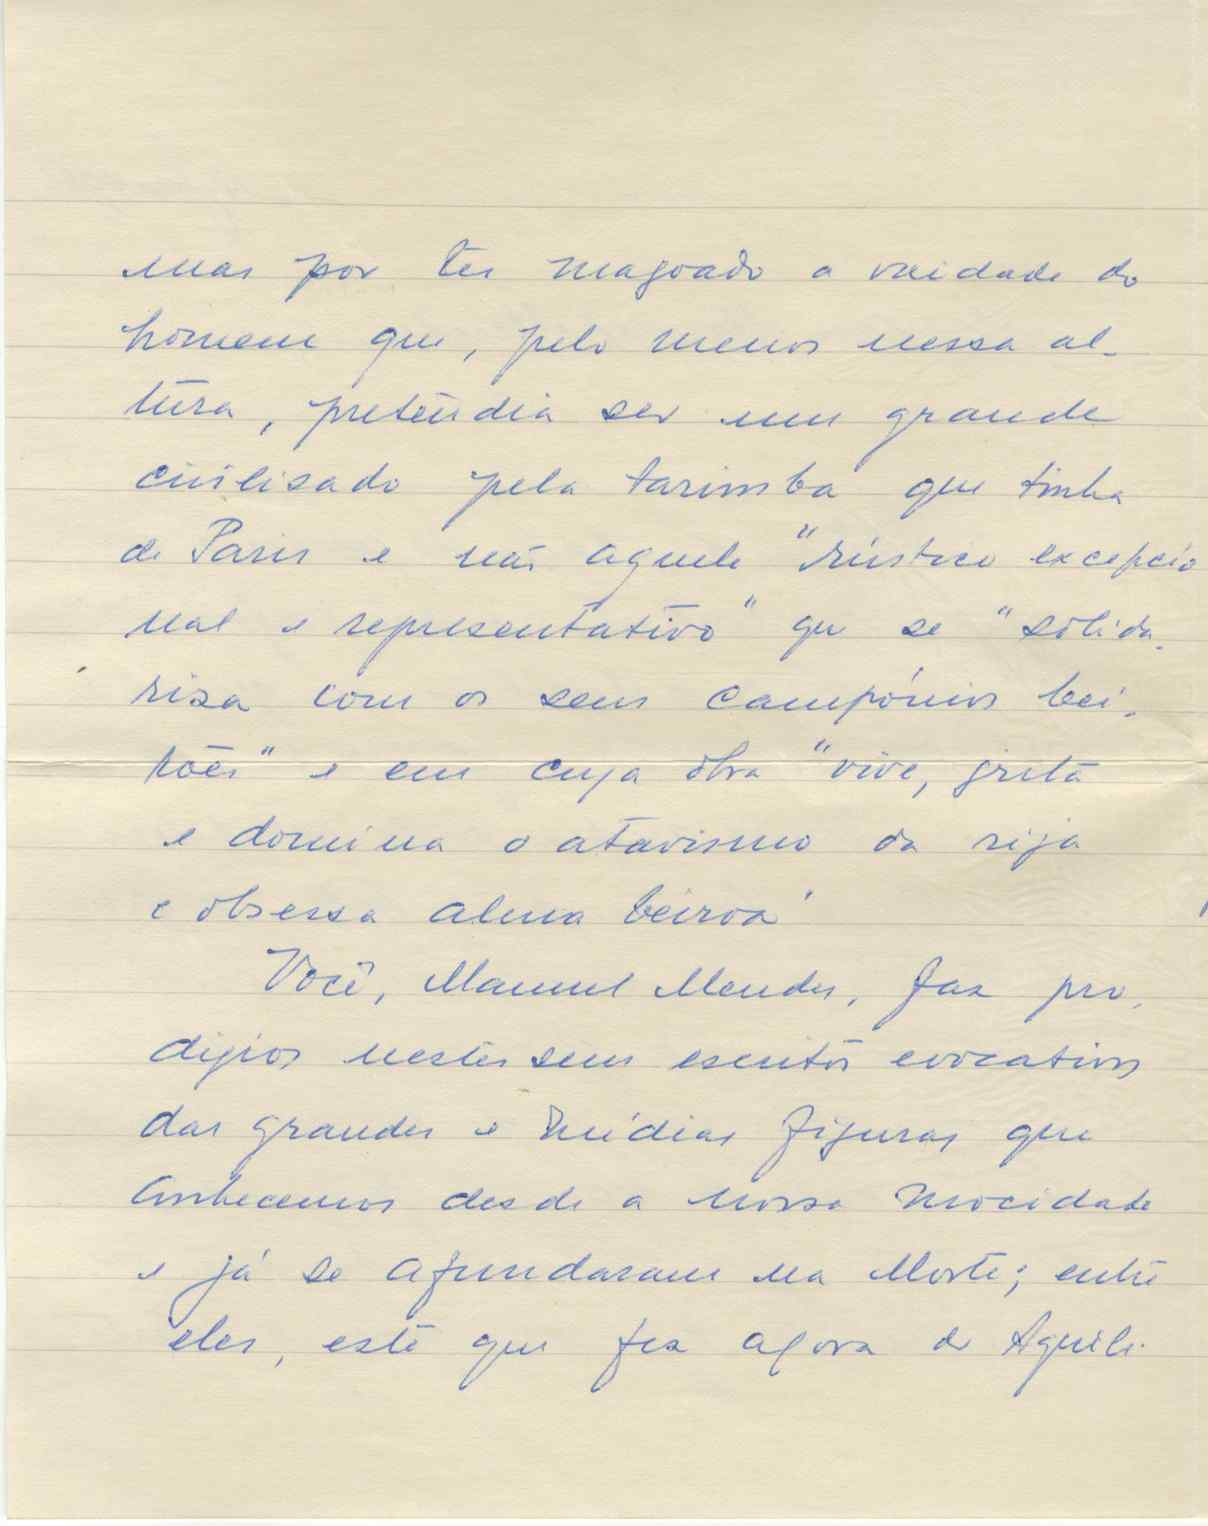 mas por ter magoado a vaidade do
homem que, pelo menos nessa al-
tura, pretendia ser um grande
civilisado pela tarimba que tinha
de Paris e não aquele "rústico excepcio
nal e representativo" que se "solida-
risa com os seus campónios bei-
rões" e em cuja obra "vive, grita
e domina o atavismo da rija
e obsessa alma beiroa"
Você, Manuel Mendes, faz pro-
digios nestes seus escritos evocativos
das grandes e médias figuras que
conhecemos desde a nossa mocidade
e já se afundaram na Morte; entre
eles, este que fez agora de Aquili-